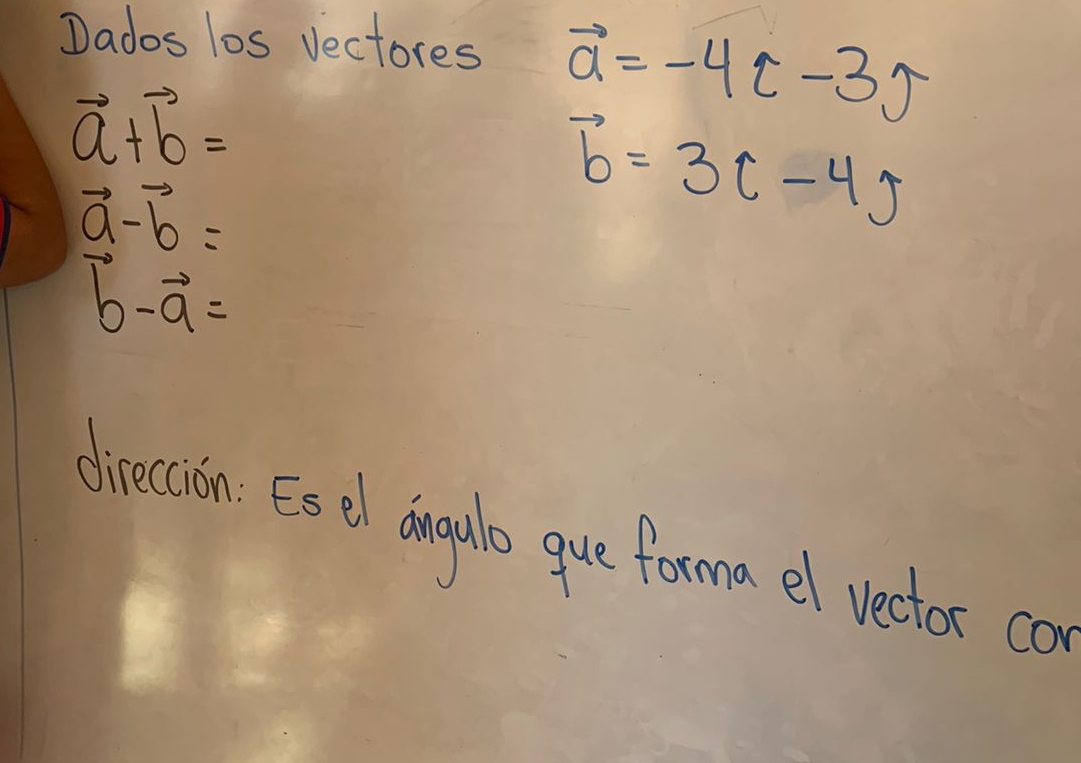 Dados los vectores
a⃗ = -4î - 3ĵ
b⃗ = 3î - 4ĵ
a⃗ + b⃗ =
a⃗ - b⃗ =
b⃗ - a⃗ =
dirección: Es el ángulo que forma el vector con